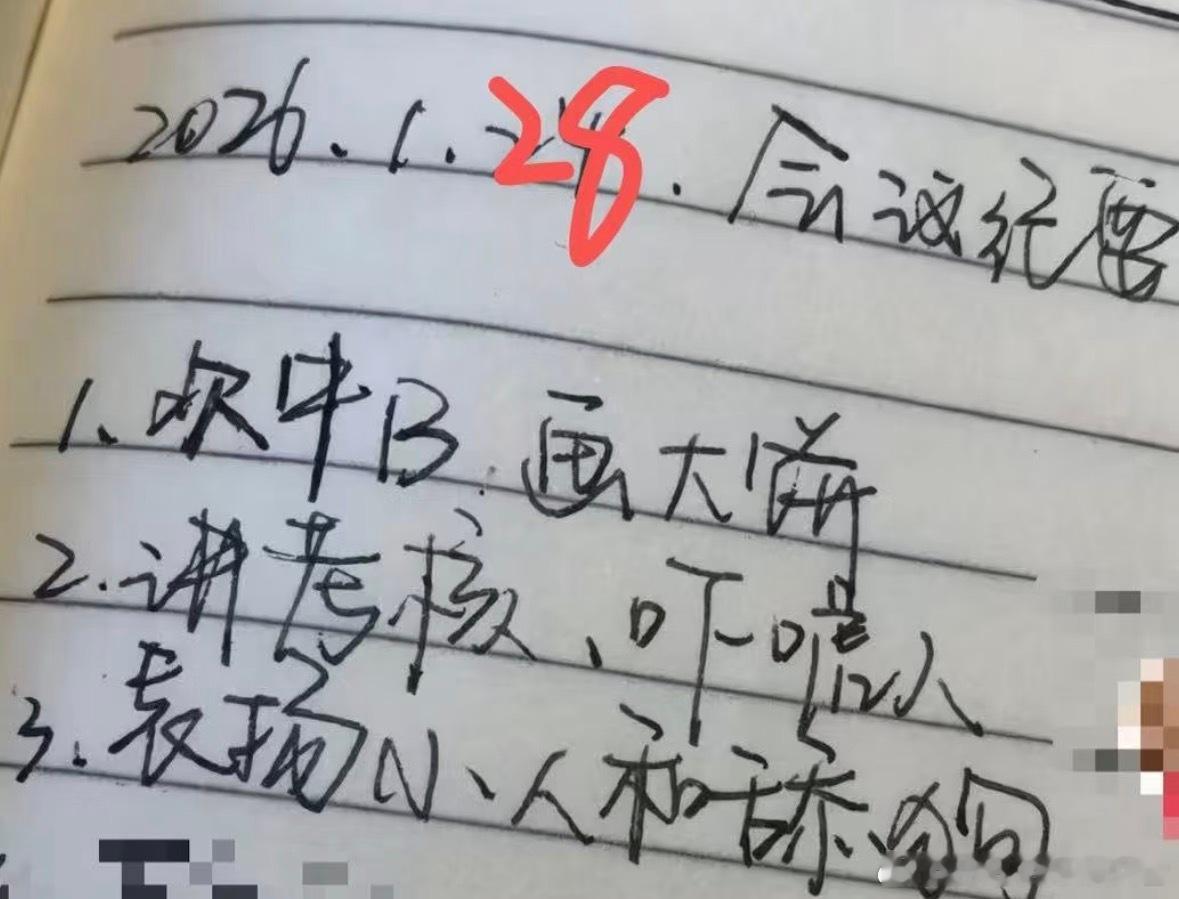 2026.1.28.会议纪要
1、吹牛B.画大饼
2.讲考核、吓唬人
3.表扬小人和舔狗